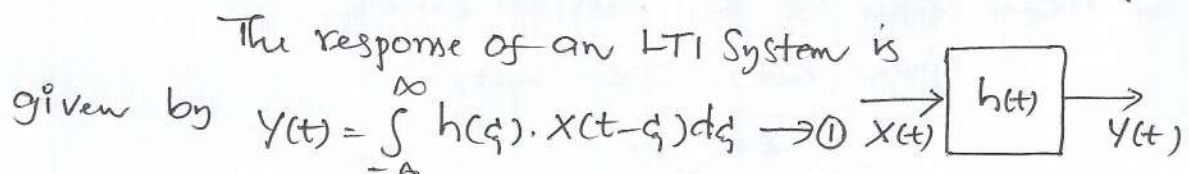 The response of an LTI System is
given by Y(t) = ∫_{-∞}^{∞} h(ξ). X(t-ξ)dξ → ① X(t) h(t) Y(t)